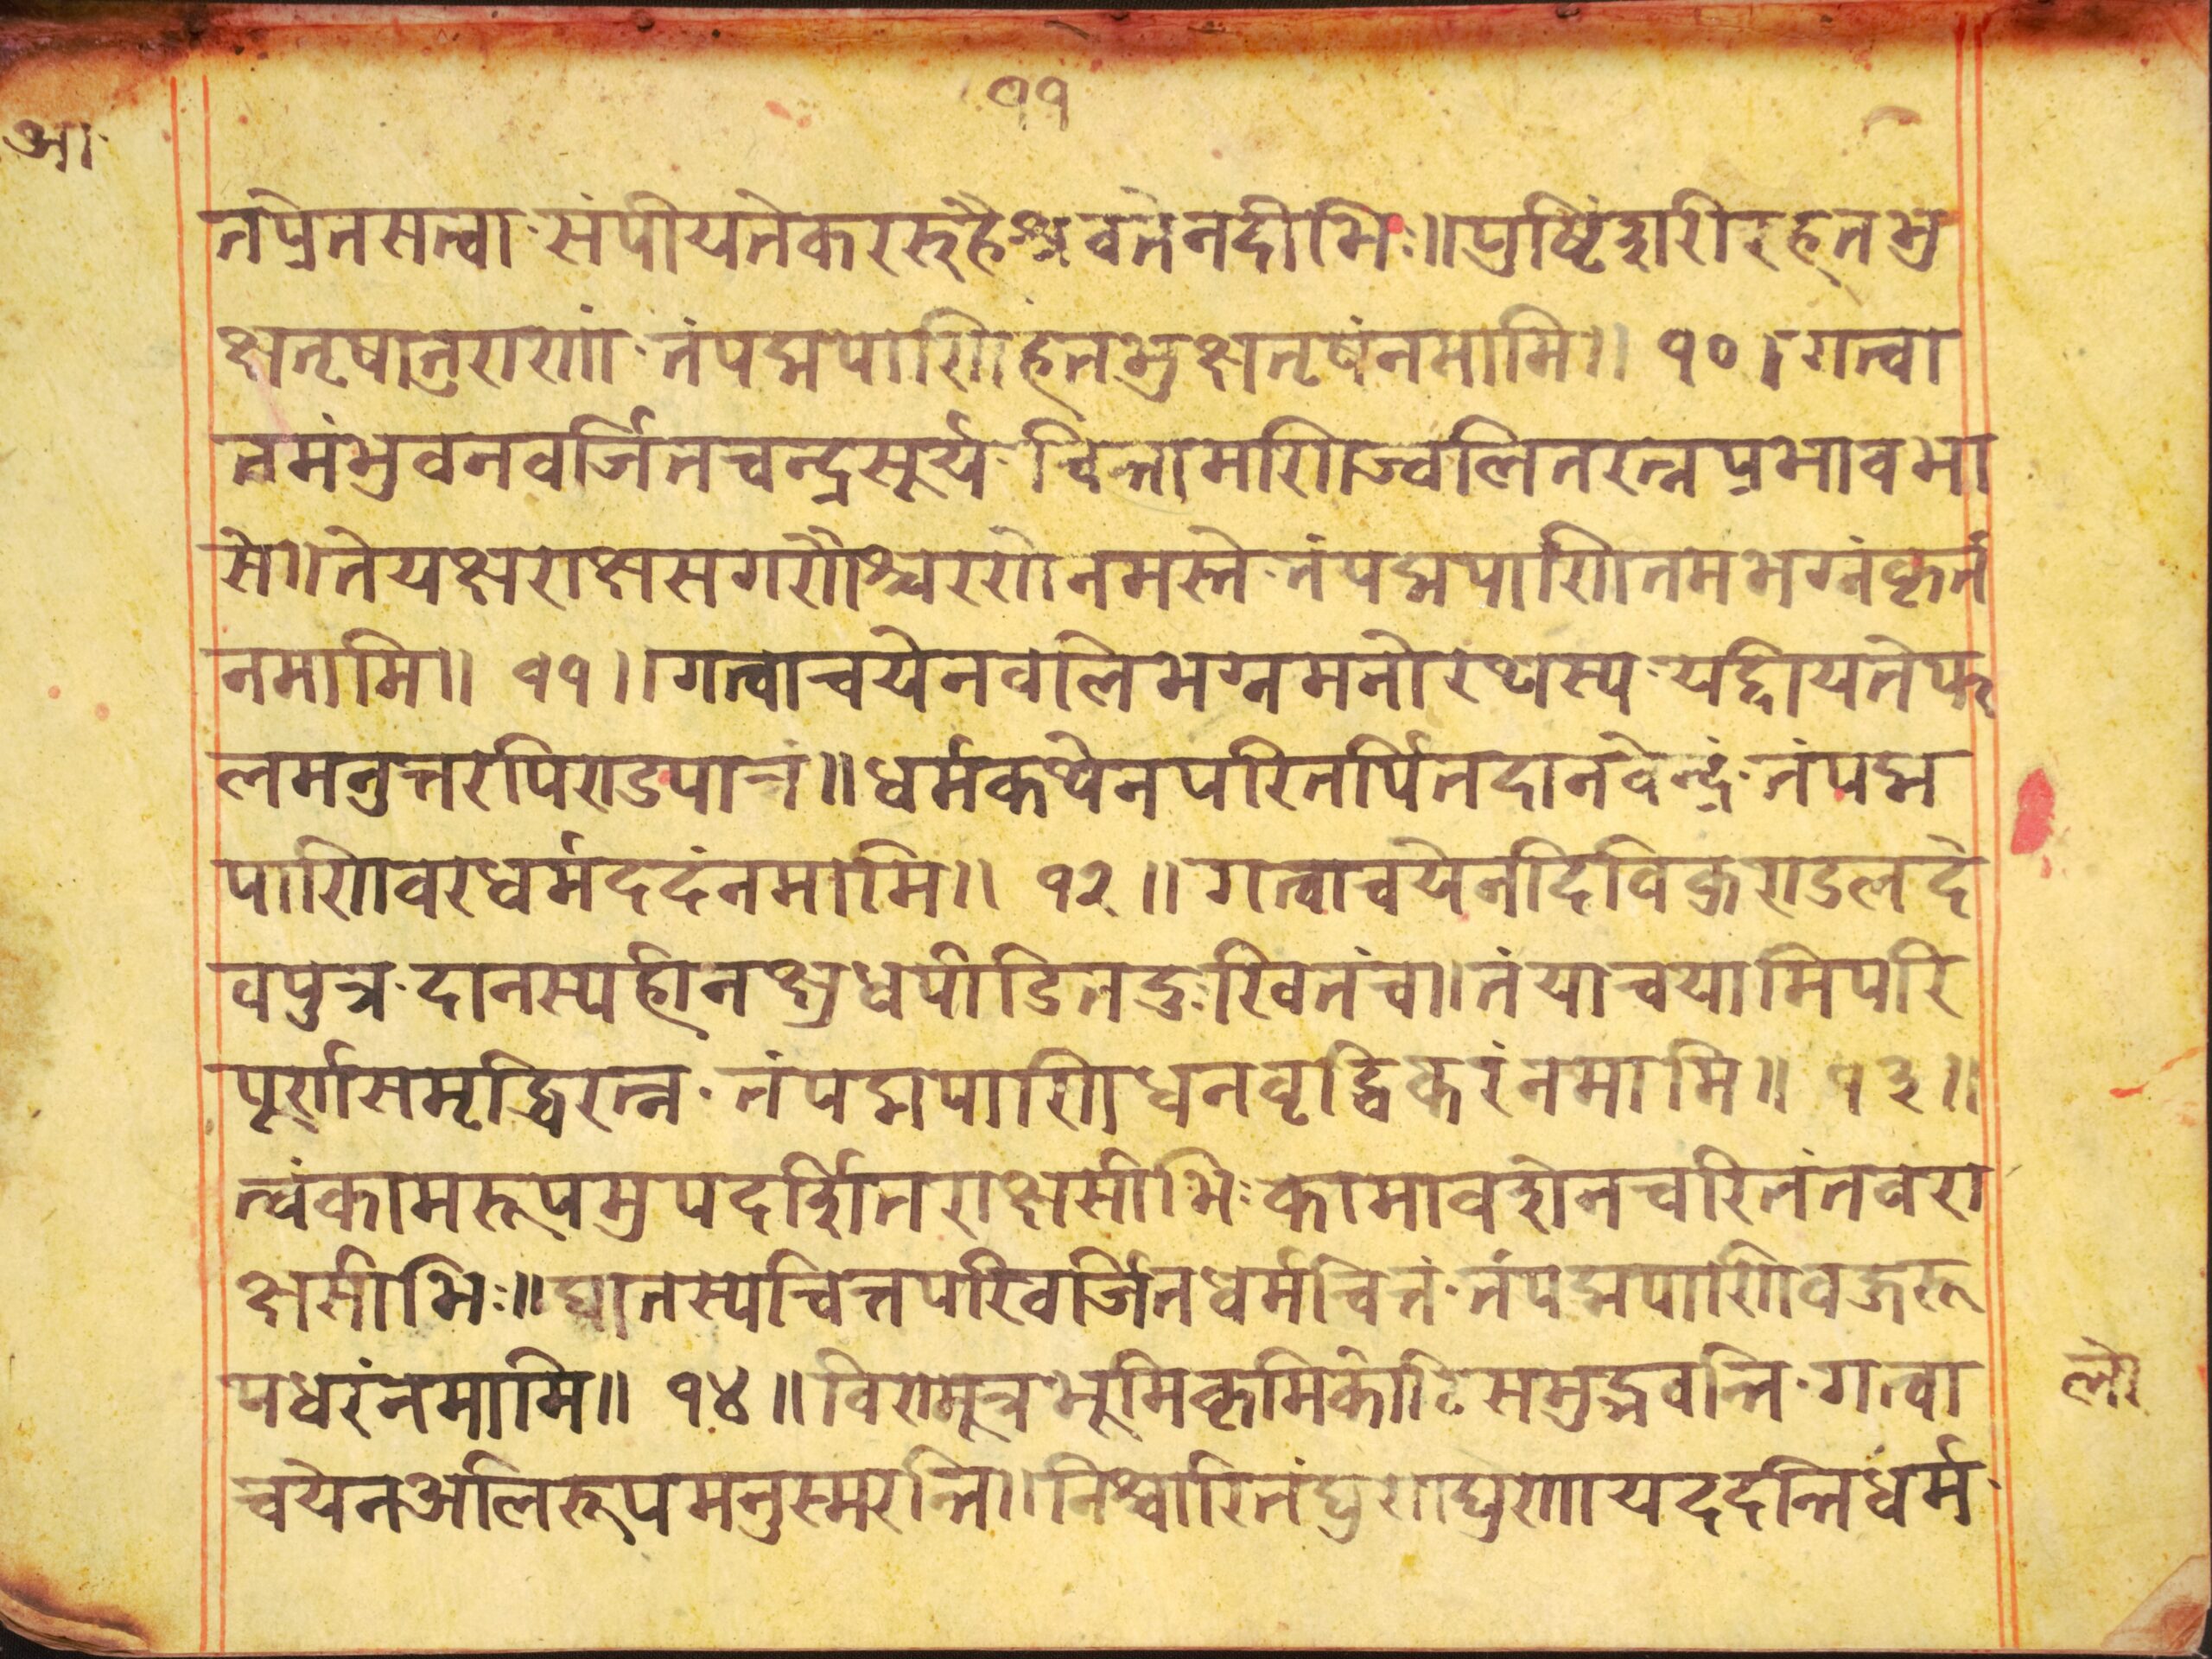 ११
आ॰
तप्रेतसत्वा॰संपीयतेकररुहैश्रवतेनदीभिः॥पुष्टिंशरीरहृतभु
क्षतृषातुराणां॰तंपद्मपाणिंहतभुक्षतृषंनमामि॥ १०।गत्वा
तमंभुवनवर्जितचन्द्रसूर्य॰चिन्तामणिज्वलितरत्नप्रभावभा
से॥तेयक्षराक्षसगणैश्चरणेनमस्ते॰तंपद्मपाणितमभग्नंकृतं
नमामि॥ ११॥गत्वाचयेनवलिभग्नमनोरथस्य॰यद्दीयतेफ
लमनुत्तरपिण्डपात्रं॥धर्मकथेनपरितर्पितदानवेन्द्रं॰तंपद्म
पाणिवरधर्मददंनमामि॥ १२॥गत्वाचयेनदिविकुण्डलदे
वपुत्र॰दानस्यहीनक्षुधपीडितदुःखितंच॥तंयाचयामिपरि
पूर्णसमृद्धिरत्न॰तंपद्मपाणिधनवृद्धिकरंनमामि॥ १३॥
त्वंकामरूपमुपदर्शितराक्षसीभिःकामावशेनचरितंतवरा
क्षसीभिः॥घातस्यचित्तपरिवर्जितधर्मचित्तं॰तंपद्मपाणिवज्ररू
पधरंनमामि॥ १४॥विण्मूत्रभूमिकृमिकोटिसमुद्भवन्ति॰गत्वा
लो
चयेनअलिरूपमनुस्मरन्ति॥निश्चारितंघुणघुणायददन्तिधर्म॰